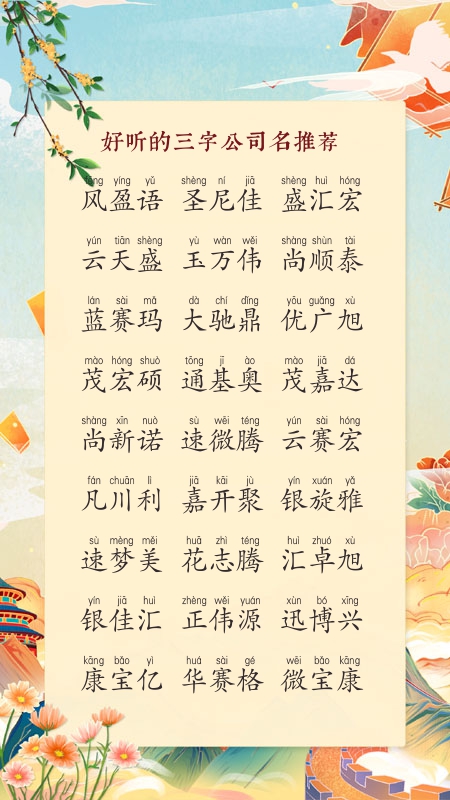 好听的三字公司名推荐
fēng yíng yǔ shèng ní jiā shèng huì hóng
风盈语 圣尼佳 盛汇宏
yún tiān shèng yù wàn wěi shàng shùn tài
云天盛 玉万伟 尚顺泰
lán sài mǎ dà chí dǐng yōu guǎng xù
蓝赛玛 大驰鼎 优广旭
mào hóng shuò tōng jī ào mào jiā dá
茂宏硕 通基奥 茂嘉达
shàng xīn nuò sù wēi téng yún sài hóng
尚新诺 速微腾 云赛宏
fán chuān lì jiā kāi jù yín xuán yǎ
凡川利 嘉开聚 银旋雅
sù mèng měi huā zhì téng huì zhuó xù
速梦美 花志腾 汇卓旭
yín jiā huì zhèng wěi yuán xùn bó xīng
银佳汇 正伟源 迅博兴
kāng bǎo yì huá sài gé wēi bǎo kāng
康宝亿 华赛格 微宝康